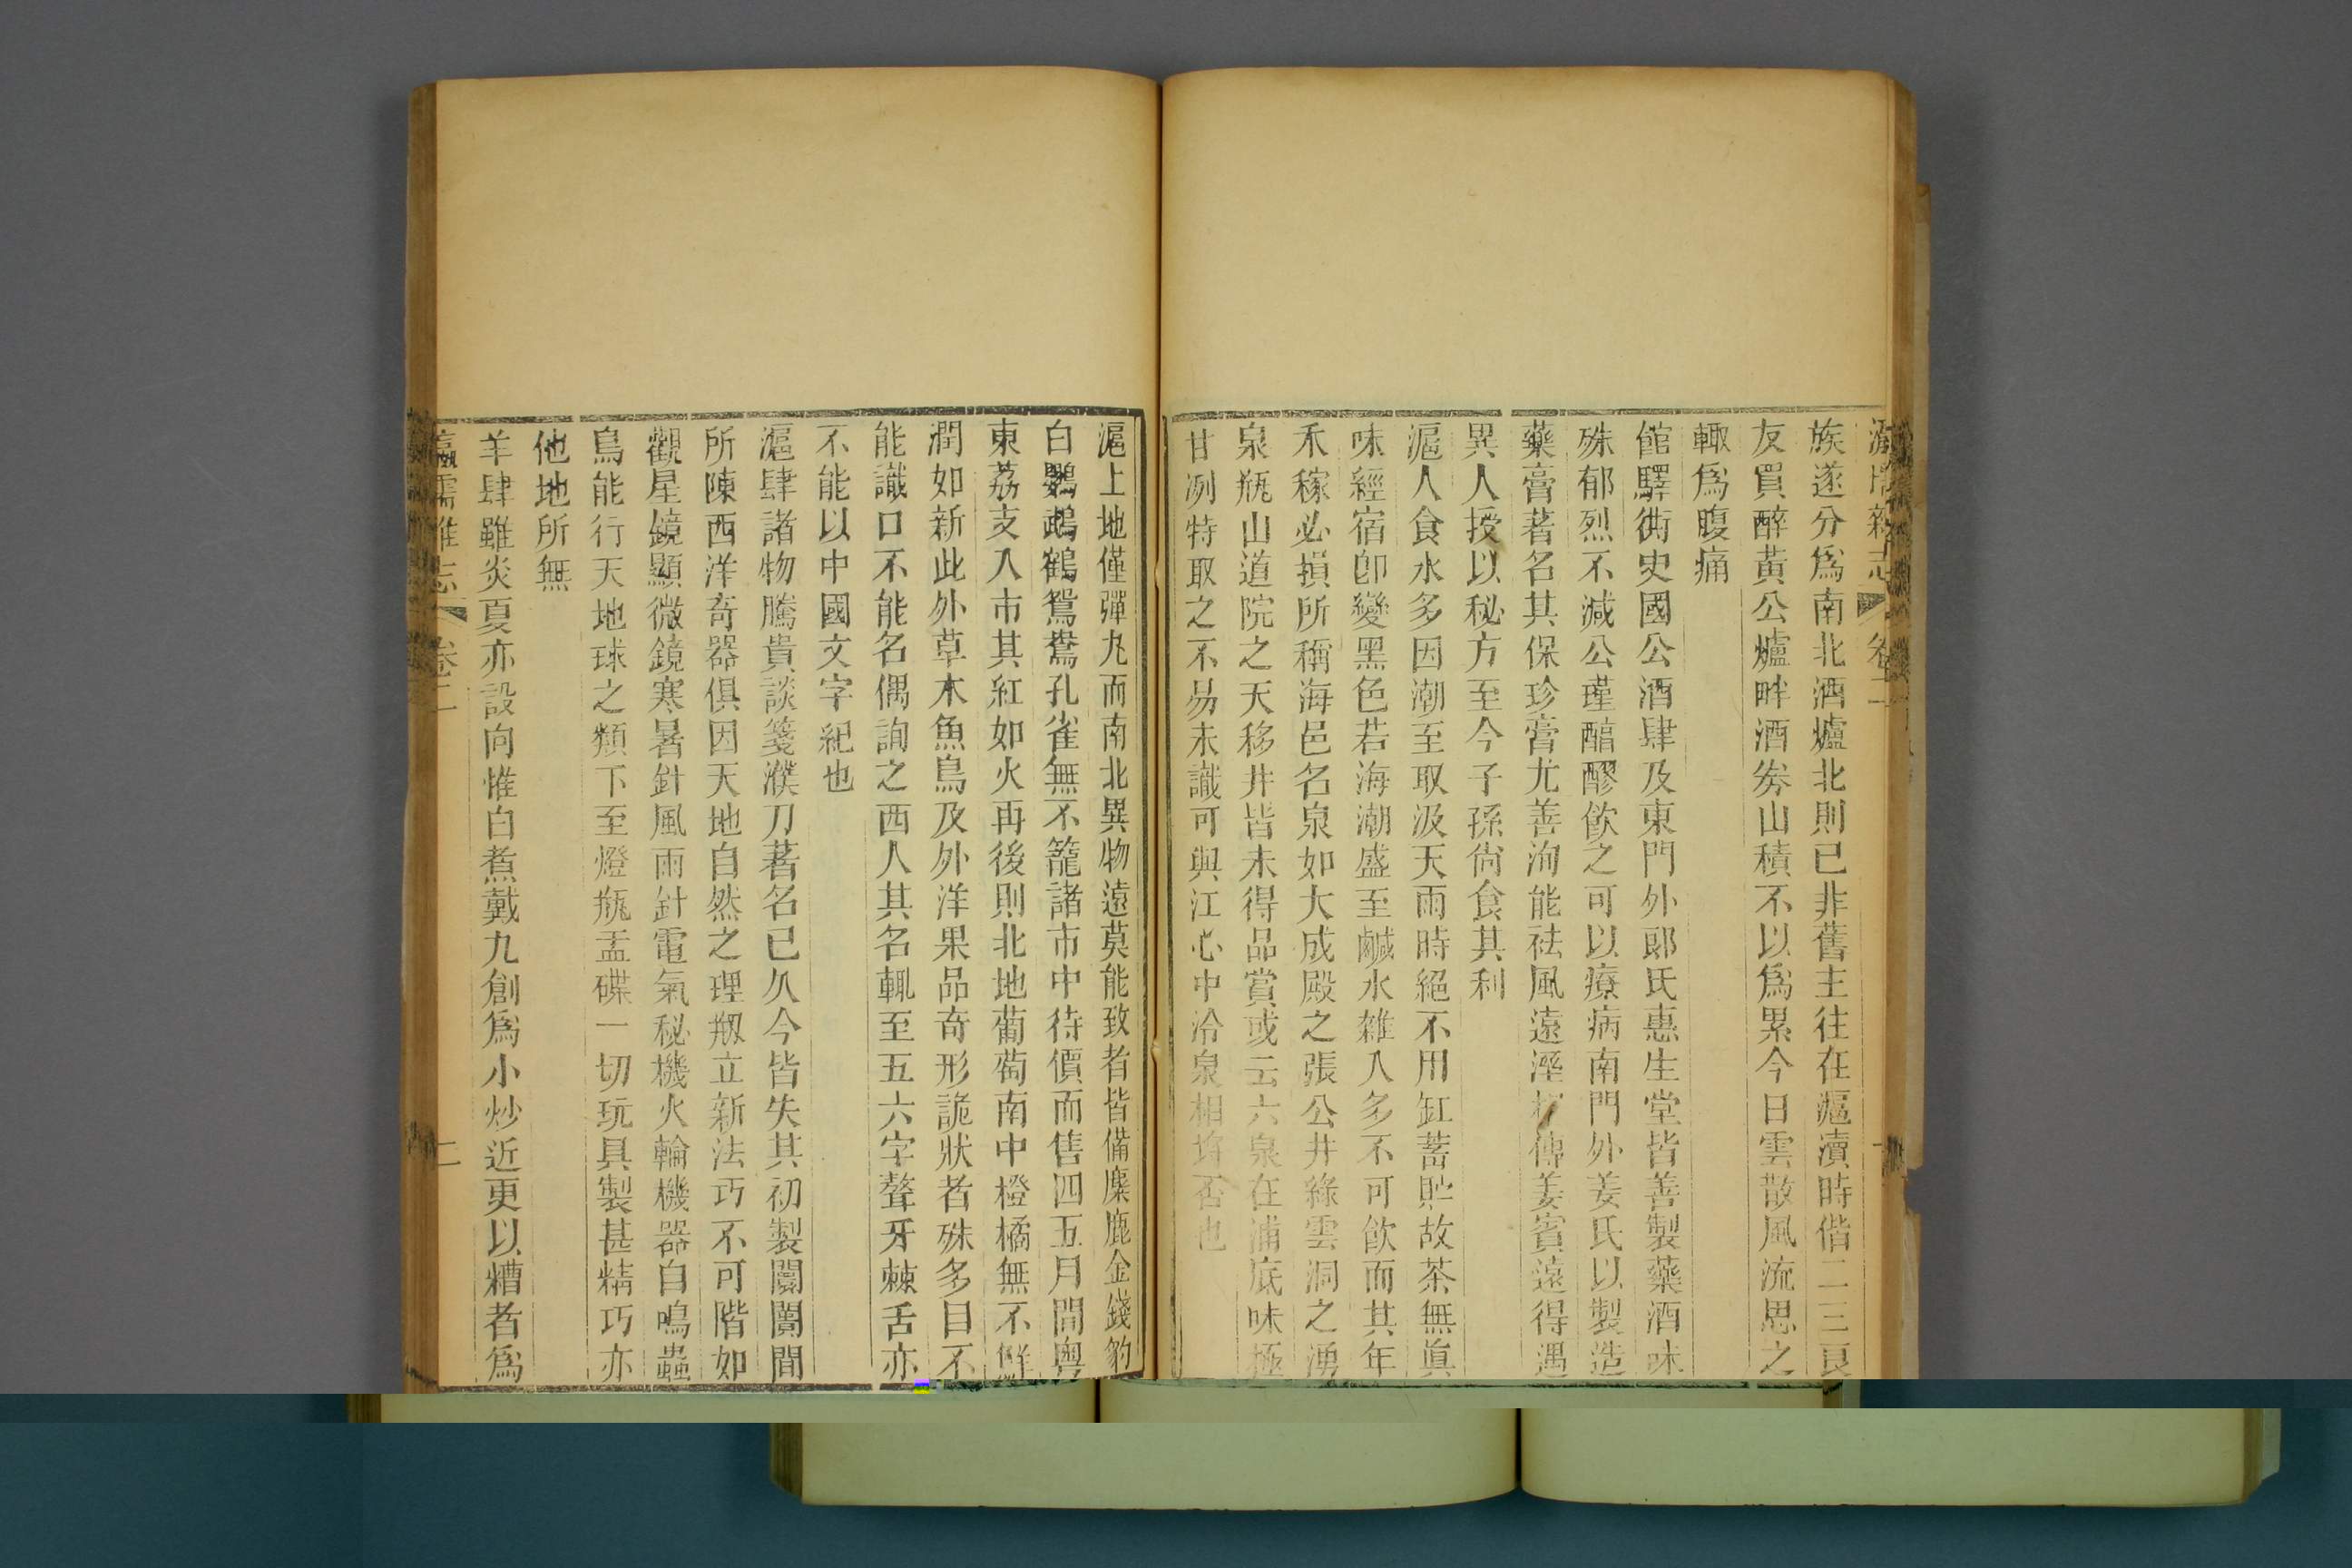 瀛壖雜志 卷二
族遂分爲南北酒爐北則已非舊主往在滬瀆時偕二三良
友買醉黃公爐畔酒券山積不以爲累今日雲散風流思之
輙爲腹痛
館驛衖史國公酒肆及東門外郞氏惠生堂皆善製藥酒味
殊郁烈不減公瑾醕醪飮之可以療病南門外姜氏以製造
藥膏著名其保珍膏尤善洵能祛風遠溼 傳姜賓遠得遇
異人授以秘方至今子孫尙食其利
滬人食水多因潮至取汲天雨時絕不用缸蓄貯故茶無眞
味經宿卽變黑色若海潮盛至鹹水雜入多不可飮而其年
禾稼必損所稱海邑名泉如大成殿之張公井綠雲洞之湧
泉瓶山道院之天移井皆未得品賞或云六泉在浦底味極
甘冽特取之不易未識可與江心中泠泉相埓否也
滬上地僅彈丸而南北異物遠莫能致者皆備麋鹿金錢豹
白鸚鵡鶴鴛鴦孔雀無不籠諸市中待價而售四五月間粵
東荔支入市其紅如火再後則北地葡萄南中橙橘無不鮮
潤如新此外草木魚鳥及外洋果品奇形詭狀者殊多目不
能識口不能名偶詢之西人其名輒至五六字聱牙棘舌亦
不能以中國文字紀也
滬肆諸物騰貴談箋濮刀著名已久今皆失其初製闤闠間
所陳西洋奇器俱因天地自然之理剏立新法巧不可階如
觀星鏡顯微鏡寒暑針風雨針電氣秘機火輪機器自鳴蟲
鳥能行天地球之類下至燈瓶盂碟一切玩具製甚精巧亦
他地所無
羊肆雖炎夏亦設向惟白煮戴九創爲小炒近更以糟者爲
瀛壖雜志 卷二 二